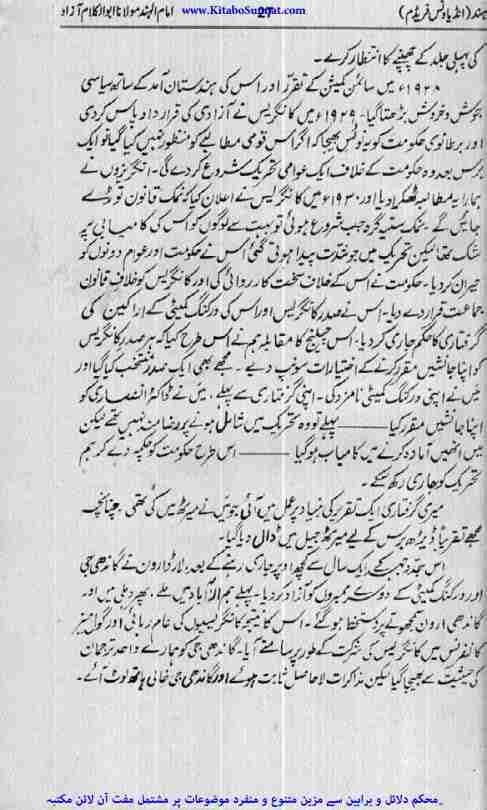 ہند (انڈیا ونس فریڈم) 27 www.KitaboSunnat.com امام الہند مولانا ابوالکلام آزاد
کی پہلی جلد کے چھپنے کا انتظار کرے۔
۱۹۲۰ء میں سائمن کمیشن کے تقرر اور اس کی ہندستان آمد کے ساتھ سیاسی
جوش و خروش بڑھتا گیا۔ ۱۹۲۹ء میں کانگریس نے آزادی کی قرار داد پاس کر دی
اور برطانوی حکومت کو یہ نوٹس بھیجا کہ اگر اس قومی مطالبے کو منظور نہیں کیا گیا تو ایک
برس بعد وہ حکومت کے خلاف ایک عوامی تحریک شروع کر دے گی۔ انگریزوں نے
ہمارا یہ مطالبہ ٹھکرا دیا اور ۱۹۳۰ء میں کانگریس نے اعلان کیا کہ نمک قانون توڑے
جائیں گے۔ نمک ستیہ گرہ جب شروع ہوئی تو بہت سے لوگوں کو اس کی کامیابی پہ
شک تھا لیکن تحریک میں جو شدت پیدا ہوتی گئی اُس نے حکومت اور عوام دونوں کو
حیران کر دیا۔ حکومت نے اس کے خلاف سخت کارروائی کی اور کانگریس کو خلاف قانون
جماعت قرار دے دیا۔ اس نے صدر کانگریس اور اس کی ورکنگ کمیٹی کے اراکین کی
گرفتاری کا حکم جاری کر دیا۔ اس چیلنج کا مقابلہ ہم نے اس طرح کیا کہ ہر صدر کانگریس
کو اپنا جانشیں مقرر کرنے کے اختیارات سونپ دیے۔ مجھے بھی ایک صدر منتخب کیا گیا اور
میں نے اپنی ورکنگ کمیٹی نامزد کی۔ اپنی گرفتاری سے پہلے، میں نے ڈاکٹر انصاری کو
اپنا جانشیں مقرر کیا ——— پہلے تو وہ تحریک میں شامل ہونے پر رضامند نہیں تھے لیکن
میں انھیں آمادہ کرنے میں کامیاب ہو گیا ——— اس طرح حکومت کو چکمہ دے کر ہم
تحریک کو جاری رکھ سکے۔
میری گرفتاری ایک تقریر کی بنیاد پر عمل میں آئی جو میں نے میرٹھ میں کی تھی۔ چنانچہ
مجھے تقریباً ڈیڑھ برس کے لیے میرٹھ جیل میں ڈال دیا گیا۔
اس جدوجہد کے ایک سال سے کچھ اوپر جاری رہنے کے بعد، لارڈ ارون نے گاندھی جی
اور ورکنگ کمیٹی کے دوسرے ممبروں کو آزاد کر دیا۔ پہلے ہم الٰہ آباد میں ملے، پھر دہلی میں اور
گاندھی ارون سمجھوتے پر دستخط ہو گئے۔ اس کا نتیجہ کانگریسیوں کی عام رہائی اور گول میز
کانفرنس میں کانگریس کی شرکت کے طور پر سامنے آیا۔ گاندھی جی کو ہمارے واحد ترجمان
کی حیثیت سے بھیجا گیا لیکن مذاکرات لاحاصل ثابت ہوئے اور گاندھی جی خالی ہاتھ لوٹ آئے۔
محکم دلائل و براہین سے مزین متنوع و منفرد موضوعات پر مشتمل مفت آن لائن مکتبہ